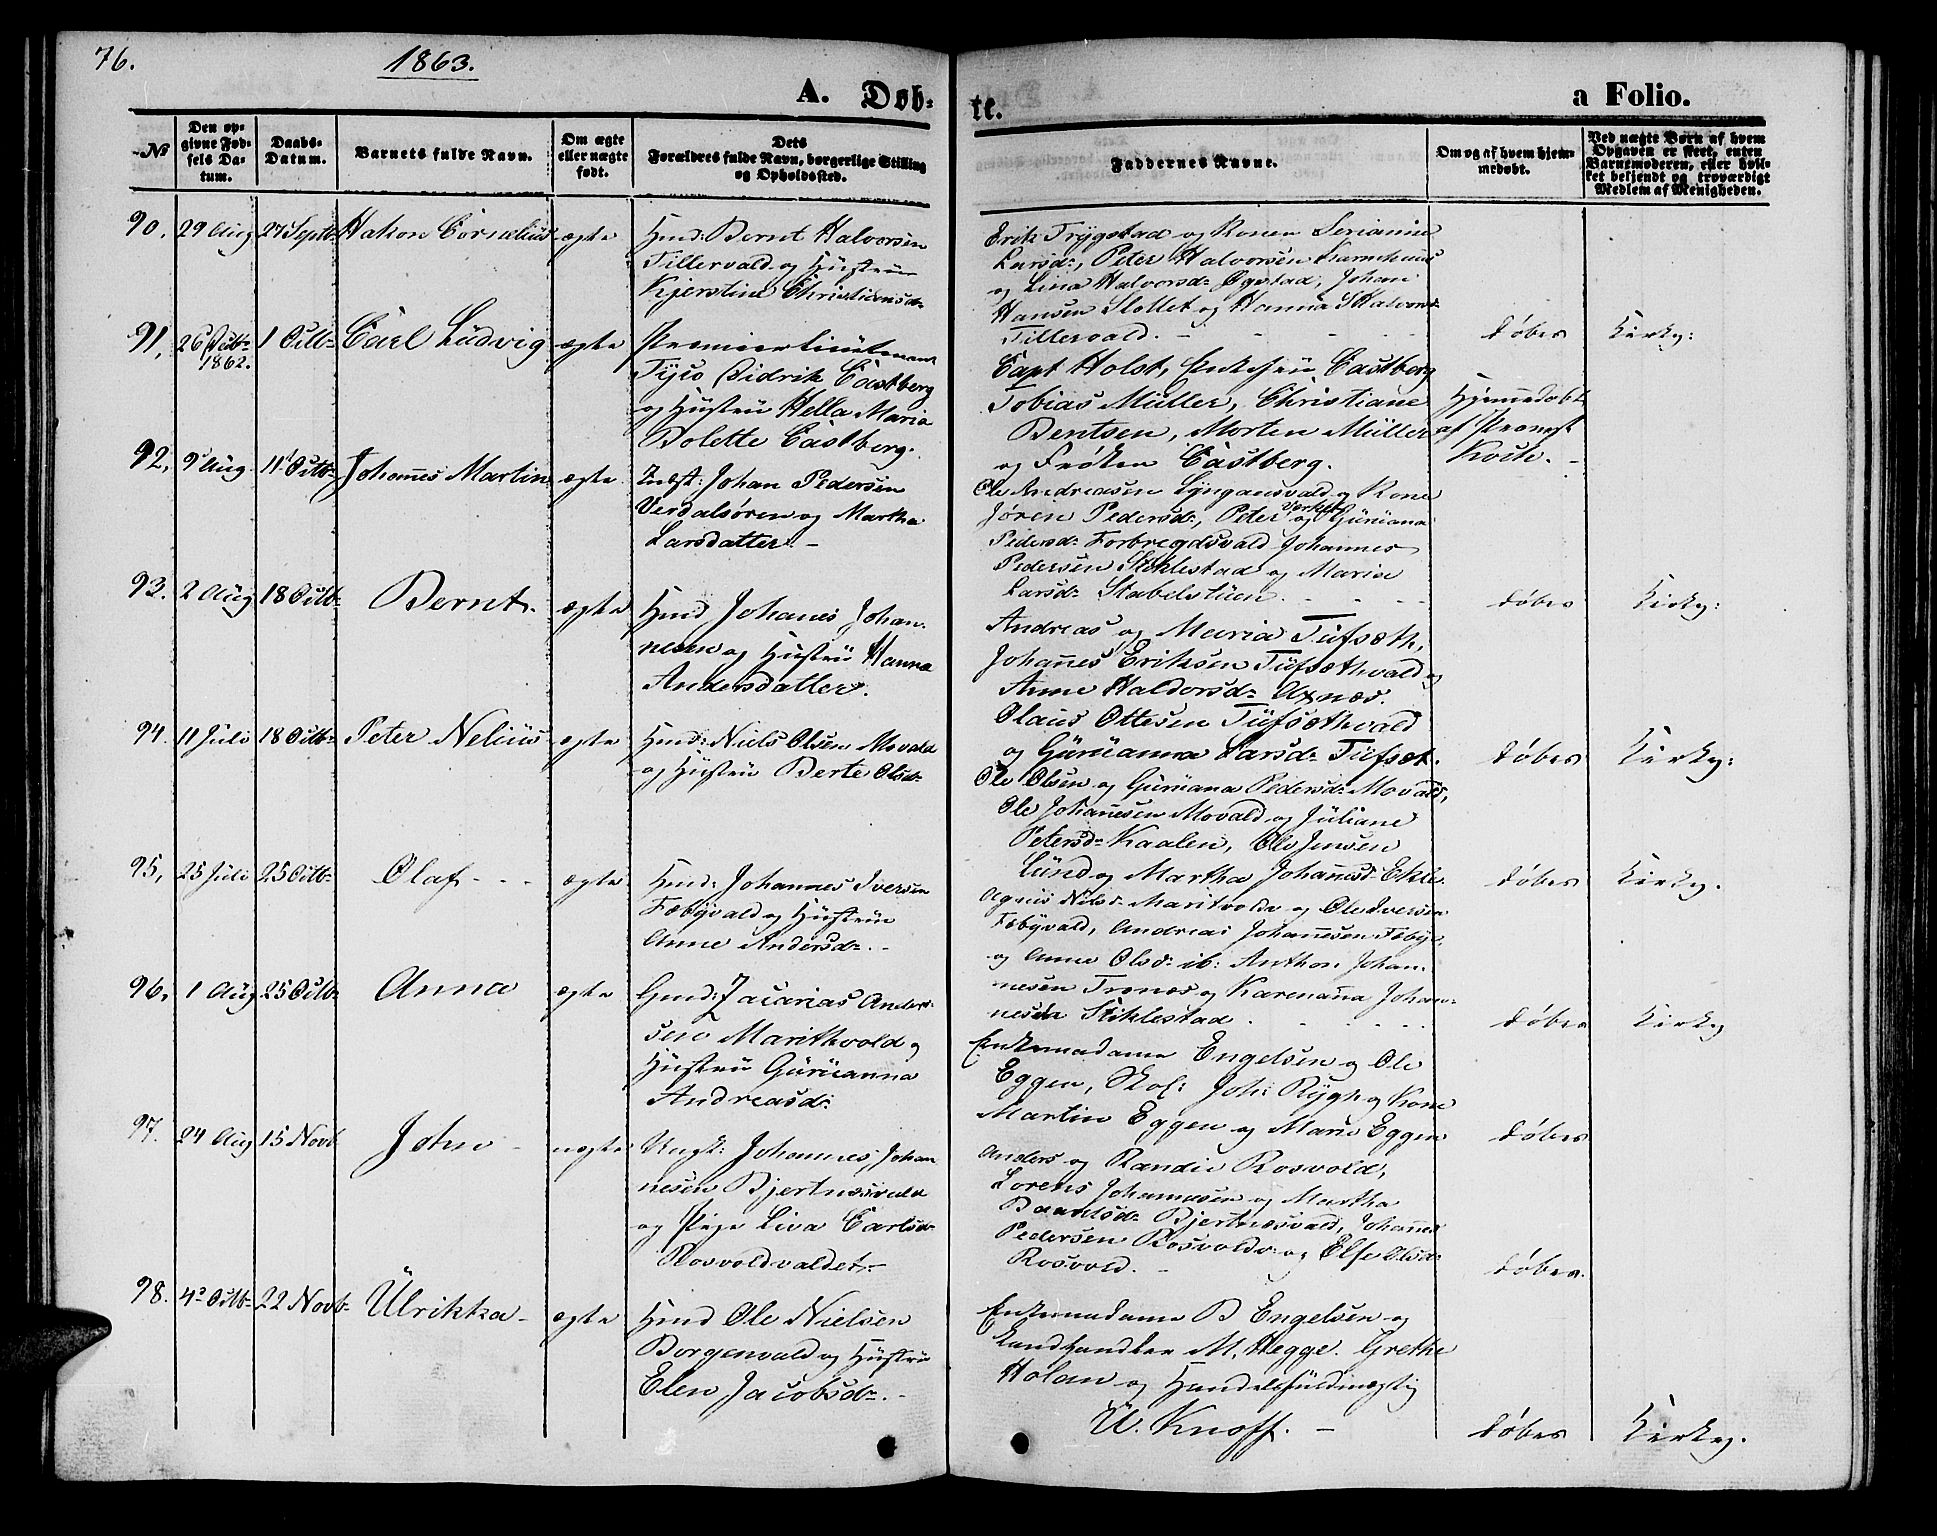 76.
1863.
A. Døb-
te.
a Folio.
No
Den op-
givne Fød-
sels Da-
tum.
Daabs-
Datum.
Barnets fulde Navn.
Om ægte
eller uægte
født.
Dets
Forældres fulde Navn, borgerlige Stilling
og Opholdssted.
Faddernes Navne.
Om og af hvem hjem-
medøbt.
Ved uægte Børn af hvem
Opgaven er skeet, enten
Barnemoderen, eller hvil-
ket bekjendt og troværdigt
Medlem af Menigheden.
90.
29 Aug
27 Septb
Hakon Cornelius
ægte
Hmd: Bernt Halvorsen
Tillervald og Hustru
Kjerstine Christiansd:
Erik Trygstad og Konen Serianna
Larsd:, Peter Halvorsen
og Lina Halvorsd: Øgstad, Johan
Hansen Slottet og Hanna Halvorsd:
Tillervald.
døbes
Kirky:
91,
26 Octb:
1862.
1 Octb:
Carl Ludvig
ægte
Premierlieutenant
Tyco Didrik Castberg
og Hustru Hella Maria
Bolette Castberg.
Capt Holst, Enkefru Castberg
Tobias Müller, Christiane
Bentsen, Morten Müller
og Frøken Castberg.
Hjemmedøbt
af Provst
Koch.
92,
9 Aug
11 Octb:
Johannes Martin
ægte
Indst: Johan Pedersen
Verdalsøren og Martha
Larsdatter.
Ole Andreasen Lyngaasvald og Kone
Jøren Pedersd:, Peter og Guruana
Pedersd: Forbregdsvald Johannes
Pedersen Stiklestad og Maria
Larsd: Stabelstuen.
døbes
Kirky:
93.
2 Aug
18 Octb:
Bernt.
ægte
Hmd Johanes Johan-
nesen og Hustru Hanna
Andersdatter.
Andreas og Maria Tufsæth,
Johannes Eriksen Tufsæthvald og
Anne Haldorsd: Axnæs.
Olaus Ottesen Tufsæthvald
og Guruanna Larsd: Tufsæt.
døbes
Kirky:
94.
11 Juli
18 Octb:
Peter Nelius
ægte
Hmd: Niels Olsen Movald
og Hustru Berte Olsd:
Ole Olsen og Guruana Pedersd: Movald,
Ole Johannesen Movald og Juliane
Petersd: Kaalen, Ole Jensen
Lund og Martha Johannesd: Ekle.
døbes
Kirky.
95,
25 Juli
25 Octb:
Olaf
ægte
Hmd: Johannes Iversen
Fæbyvald og Hustru
Anne Andersd:
Agnis Nilsd: Maritvold og Ole Iversen
Fæbyvald, Andreas Johannesen Fæby
og Anne Olsd: ib: Anthon Johan-
nesen Trones og Karenanna Johan-
nesen Stiklestad.
døbes
Kirky
96,
1 Aug
25 Octb:
Anna
ægte
Gmd: Zacarias Ander-
sen Marithvold og
Hustru Guruanna
Andreasd:
Enkemadame Engelsen og Ole
Eggen, Skol: Joh: Rygh og Kone
Martin Eggen og Marie Eggen
døbes
97.
24 Aug
15 Novb
John
uægte
Ungk: Johannes Johan-
nesen Bjertnæsvald
og Pige Liva Carlsd:
Rosvoldvaldet.
Anders og Randie Rosvold,
Lorens Johannesen og Martha
Baardsd: Bjertnæsvald, Johannes
Pedersen Rosvold og Else Olsd:
Rosvold.
døbes.
98.
4 Octb:
22 Novb:
Ulrikka
ægte
Hmd Ole Nielsen
Borgenvald og Hustru
Elen Jacobsd:
Enkemadame B Engelsen og
Landhandler M. Hegge. Grethe
Holan og Handelsfuldmægtig
U. Knoff.
døbes
Kirky.